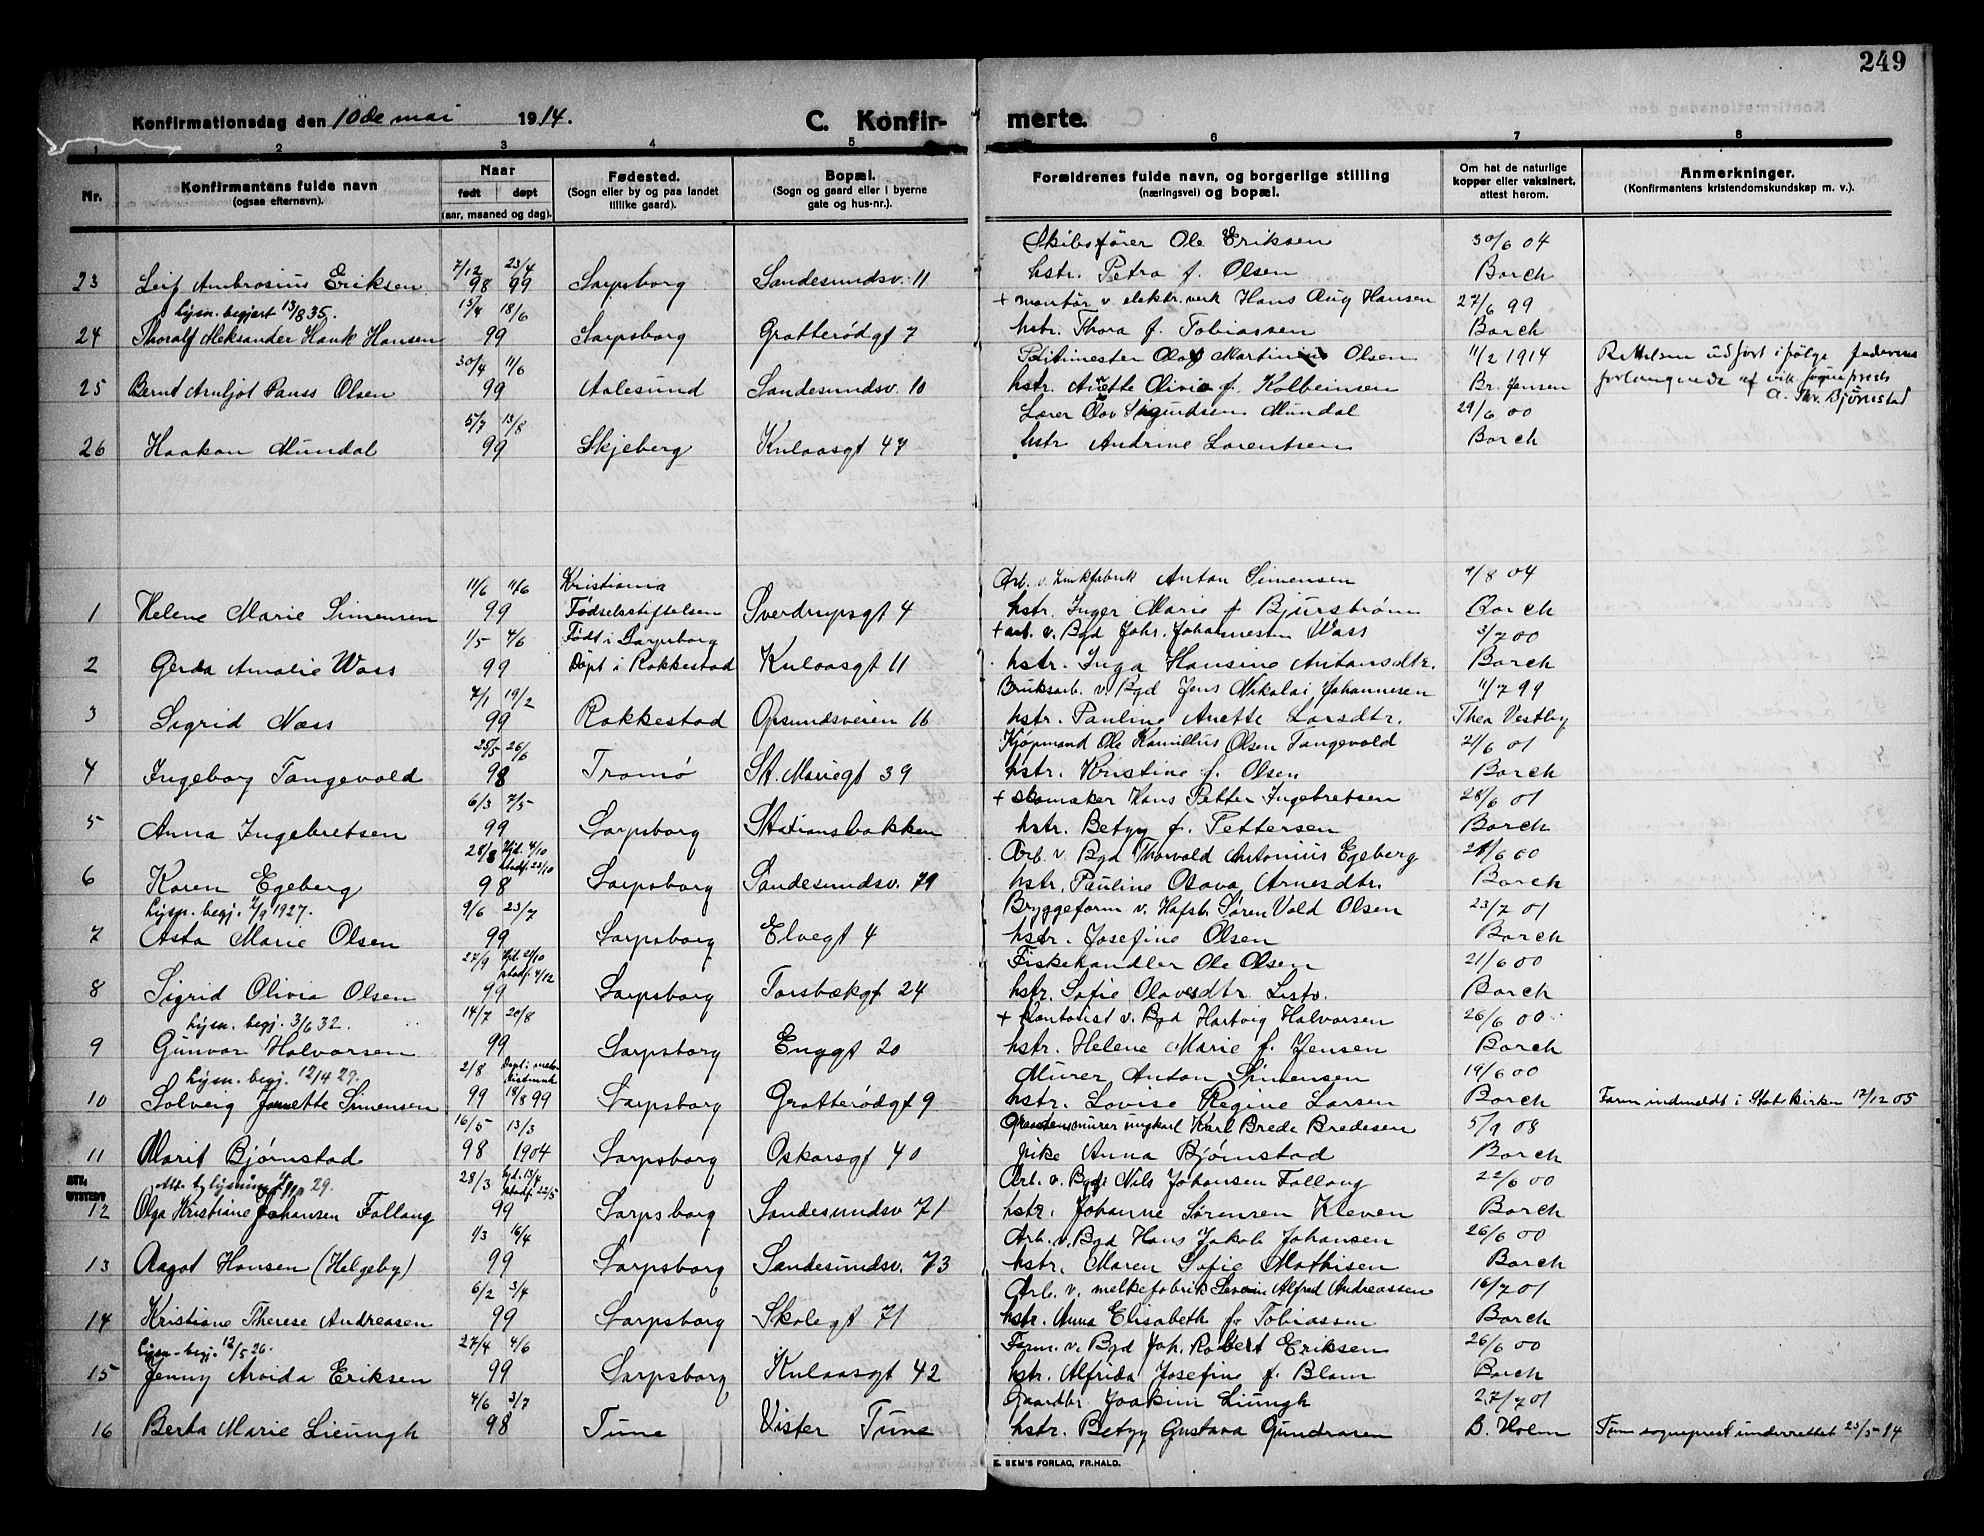 249
Konfirmationsdag den 10de mai 1914.
C. Konfirmerte.
1 2 3 4 5 6 7 8
Nr.
Konfirmantens fulde navn
(ogsaa efternavn).
Naar
født døpt
(aar, maaned og dag).
Fødested.
(Sogn eller by og paa landet
tillike gaard).
Bopæl.
(Sogn og gaard eller i byerne
gate og hus-nr.).
Forældrenes fulde navn, og borgerlige stilling
(næringsvei) og bopæl.
Om hat de naturlige
kopper eller vaksinert,
attest herom.
Anmerkninger.
(Konfirmantens kristendomskundskap m. v.).
Skibsfører Ole Eriksen 30/6 04
7/12 23/4
23 Leif Ambrosius Eriksen 98 99 Sarpsborg Sandesundsv. 11 hstr. Petra f. Olsen Borch
Lysn. begjært 13/8 35. 15/4 18/6 + montør v. elektr. verk Hans Aug Hansen 27/6 99
24 Thoralf Aleksander Hauk Hansen 99 Sarpsborg Grotterødgt 7 hstr. Thora f. Tobiassen Borch
30/4 11/6 Politimester Olaf Martinius Olsen 11/2 1914 Rettelsen utført ifølge faderens
25 Bernt Arnljot Pauss Olsen 99 Aalesund Sandesundsv. 10 hstr. Anette Olivia f. Kolbeinsen Br. Jensen forlangende af vik. sogneprest
A. Thv. Bjørnestad
5/7 13/8 Lærer Olav Sigurdsen Mundal 29/6 00
26 Haakon Mundal 99 Skjeberg Kulaasgt 47 hstr Andrine Lorentsen Borch
11/6 11/6 Kristiania Arb. v. Zinkfabrik Anton Simensen 9/8 04
1 Helene Marie Simensen 99 Fødselsstiftelsen Sverdrupsgt 4 hstr. Inger Marie f. Bjurstrøm Borch
1/5 4/6 Født i Sarpsborg + arb. v. Bgd Johs. Johannesen Wass 3/7 00
2 Gerda Amalie Wass 99 Døpt i Rokkestad Kulaasgt 11 hstr. Inga Hansine Antonsdtr. Borch
7/1 19/2 Bruksarb. v. Bgd Jens Nikolai Johannesen 11/7 99
3 Sigrid Næss 99 Rakkestad Opsundsveien 16 hstr. Pauline Anette Larsdtr. Thea Vestby
25/5 26/6 Kjøpmand Ole Kamillus Olsen Tangevold 21/6 01
4 Ingeborg Tangevold 98 Tromø St. Mariegt 39 hstr. Kristine f. Olsen Borch
6/3 7/5 + skomaker Hans Petter Ingebretsen 28/6 01
5 Anna Ingebretsen 99 Sarpsborg Stationsbakken hstr. Betzy f. Pettersen Borch
28/8 Hjd. 4/10 Arb. v. Bgd Thorvald Antonius Egeberg 21/6 00
stadf. 23/10
6 Karen Egeberg 98 Sarpsborg Sandesundsv. 79 hstr. Pauline Olava Arnesdtr. Borch
Lysn. begj. 2/9 1927. 9/6 23/7 Bryggeform v. Hafsl. Søren Vold Olsen 23/7 01
7 Asta Marie Olsen 99 Sarpsborg Elvegt 4 hstr. Josefine Olsen Borch
27/9 Hjd. 21/10 Fiskehandler Ole Olsen 21/6 00
stadf. 4/12
8 Sigrid Olivia Olsen 99 Sarpsborg Torsbækgt 24 hstr. Sofie Olavesdtr. Borch
Lysn. begj. 3/6 32. 14/7 20/8 + kontorist v. Bgd Hartvig Halvorsen 26/6 00
9 Gunvor Halvorsen 99 Sarpsborg Enggt 20 hstr. Helene Marie f. Jensen Borch
Lysn. begj. 12/4 29. 2/8 Døpt i Murer Anton Simensen 19/6 00
10 Solveig Jeanette Simensen 99 18/8 99 Sarpsborg Grotterødgt 9 hstr. Lovise Regine Larsen Borch Faren indmeldt i Statskirken 12/12 05
16/5 13/3 Graastensmurer ungkarl Karl Brede Bredesen 5/9 08
11 Marit Bjørnstad 98 1904 Sarpsborg Oskarsgt 40 pike Anna Bjørnstad Borch
ATT. UTSTEDT
28/3 hjd. 13/4 Arb. v. Bgd Nils Johansen Fallang 22/6 00
stadf. 22/5
12 Olga Kristiane Johansen Fallang 99 Sarpsborg Sandesundsv 71 hstr. Johanne Sørensen Kleven Borch
1/3 16/4 Arb. v. Bgd Hans Jakob Johansen 26/6 00
13 Aagot Hansen (Helgeby) 99 Sarpsborg Sandesundsv. 73 hstr. Maren Sofie Mathisen Borch
6/2 3/4 Arb. v. melkefabrik Severin Alfred Andreassen 16/7 01
14 Kristiane Therese Andreasen 99 Sarpsborg Skolegt 71 hstr. Anna Elisabeth f. Tobiassen Borch
Lysn. begj. 12/5 26. 27/4 4/6 Form. v. Bgd Joh. Robert Eriksen 26/6 00
15 Jenny Arvida Eriksen 99 Sarpsborg Kulaasgt 42 hstr. Alfrida Josefine f. Blom Borch
4/6 3/7 Gaardbr. Joakim Liungh 27/7 01
16 Berta Marie Lieungh 98 Tune Vister Tune hstr. Betzy Gustava Gundrosen B. Holm Tune sogneprest underrettet 25/5-14
E. SEM'S FORLAG, FR.HALD.